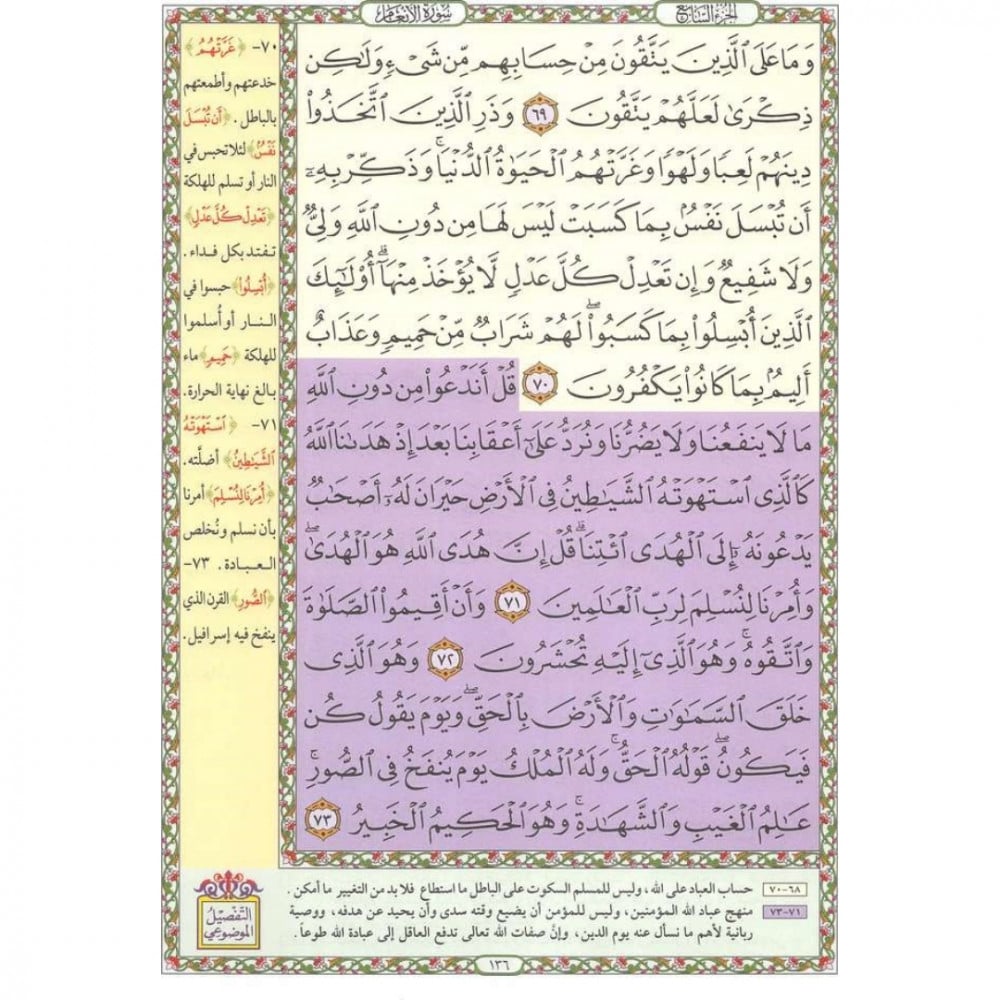 سورة الأنعام
الجزء السابع
وَمَا عَلَى ٱلَّذِينَ يَتَّقُونَ مِنْ حِسَابِهِم مِّن شَىْءٍ وَلَٰكِن
ذِكْرَىٰ لَعَلَّهُمْ يَتَّقُونَ ٦٩ وَذَرِ ٱلَّذِينَ ٱتَّخَذُوا۟
دِينَهُمْ لَعِبًا وَلَهْوًا وَغَرَّتْهُمُ ٱلْحَيَوٰةُ ٱلدُّنْيَا ۚ وَذَكِّرْ بِهِۦٓ
أَن تُبْسَلَ نَفْسٌۢ بِمَا كَسَبَتْ لَيْسَ لَهَا مِن دُونِ ٱللَّهِ وَلِىٌّ
وَلَا شَفِيعٌ وَإِن تَعْدِلْ كُلَّ عَدْلٍ لَّا يُؤْخَذْ مِنْهَآ ۗ أُو۟لَٰٓئِكَ
ٱلَّذِينَ أُبْسِلُوا۟ بِمَا كَسَبُوا۟ ۖ لَهُمْ شَرَابٌ مِّنْ حَمِيمٍ وَعَذَابٌ
أَلِيمٌۢ بِمَا كَانُوا۟ يَكْفُرُونَ ٧٠ قُلْ أَنَدْعُوا۟ مِن دُونِ ٱللَّهِ
مَا لَا يَنفَعُنَا وَلَا يَضُرُّنَا وَنُرَدُّ عَلَىٰٓ أَعْقَابِنَا بَعْدَ إِذْ هَدَىٰنَا ٱللَّهُ
كَٱلَّذِى ٱسْتَهْوَتْهُ ٱلشَّيَٰطِينُ فِى ٱلْأَرْضِ حَيْرَانَ لَهُۥٓ أَصْحَٰبٌ
يَدْعُونَهُۥٓ إِلَى ٱلْهُدَى ٱئْتِنَا ۗ قُلْ إِنَّ هُدَى ٱللَّهِ هُوَ ٱلْهُدَىٰ ۖ
وَأُمِرْنَا لِنُسْلِمَ لِرَبِّ ٱلْعَٰلَمِينَ ٧١ وَأَنْ أَقِيمُوا۟ ٱلصَّلَوٰةَ
وَٱتَّقُوهُ ۚ وَهُوَ ٱلَّذِىٓ إِلَيْهِ تُحْشَرُونَ ٧٢ وَهُوَ ٱلَّذِى
خَلَقَ ٱلسَّمَٰوَٰتِ وَٱلْأَرْضَ بِٱلْحَقِّ ۖ وَيَوْمَ يَقُولُ كُن
فَيَكُونُ ۖ قَوْلُهُ ٱلْحَقُّ ۚ وَلَهُ ٱلْمُلْكُ يَوْمَ يُنفَخُ فِى ٱلصُّورِ ۚ
عَٰلِمُ ٱلْغَيْبِ وَٱلشَّهَٰدَةِ ۚ وَهُوَ ٱلْحَكِيمُ ٱلْخَبِيرُ ٧٣
٧٠- ﴿غَرَّتْهُمُ﴾
خدعتهم وأطمعتهم
بالباطل . ﴿أَن تُبْسَلَ
نَفْسٌ﴾ لئلا تحبس في
النار أو تسلم للهلكة
﴿تَعْدِلْ كُلَّ عَدْلٍ﴾
تفتد بكل فداء .
﴿أُبْسِلُوا۟﴾ حبسوا في
النار أو أُسلموا
للهلكة ﴿حَمِيمٍ﴾ ماء
بالغ نهاية الحرارة.
٧١- ﴿ٱسْتَهْوَتْهُ
ٱلشَّيَٰطِينُ﴾ أضلَّته.
﴿أُمِرْنَا لِنُسْلِمَ﴾ أمرنا
بأن نسلم ونُخلص
العبادة. ٧٣-
﴿ٱلصُّورِ﴾ القرن الذي
ينفخ فيه إسرافيل.
التفصيل
الموضوعي
٦٨-٧٠ حساب العباد على الله، وليس للمسلم السكوت على الباطل ما استطاع فلا بد من التغيير ما أمكن .
٧١-٧٣ منهج عباد الله المؤمنين، وليس للمؤمن أن يضيع وقته سدى وأن يحيد عن هدفه، ووصية
ربانية لأهم ما نسأل عنه يوم الدين، وإنَّ صفات الله تعالى تدفع العاقل إلى عبادة الله طوعاً.
١٣٦